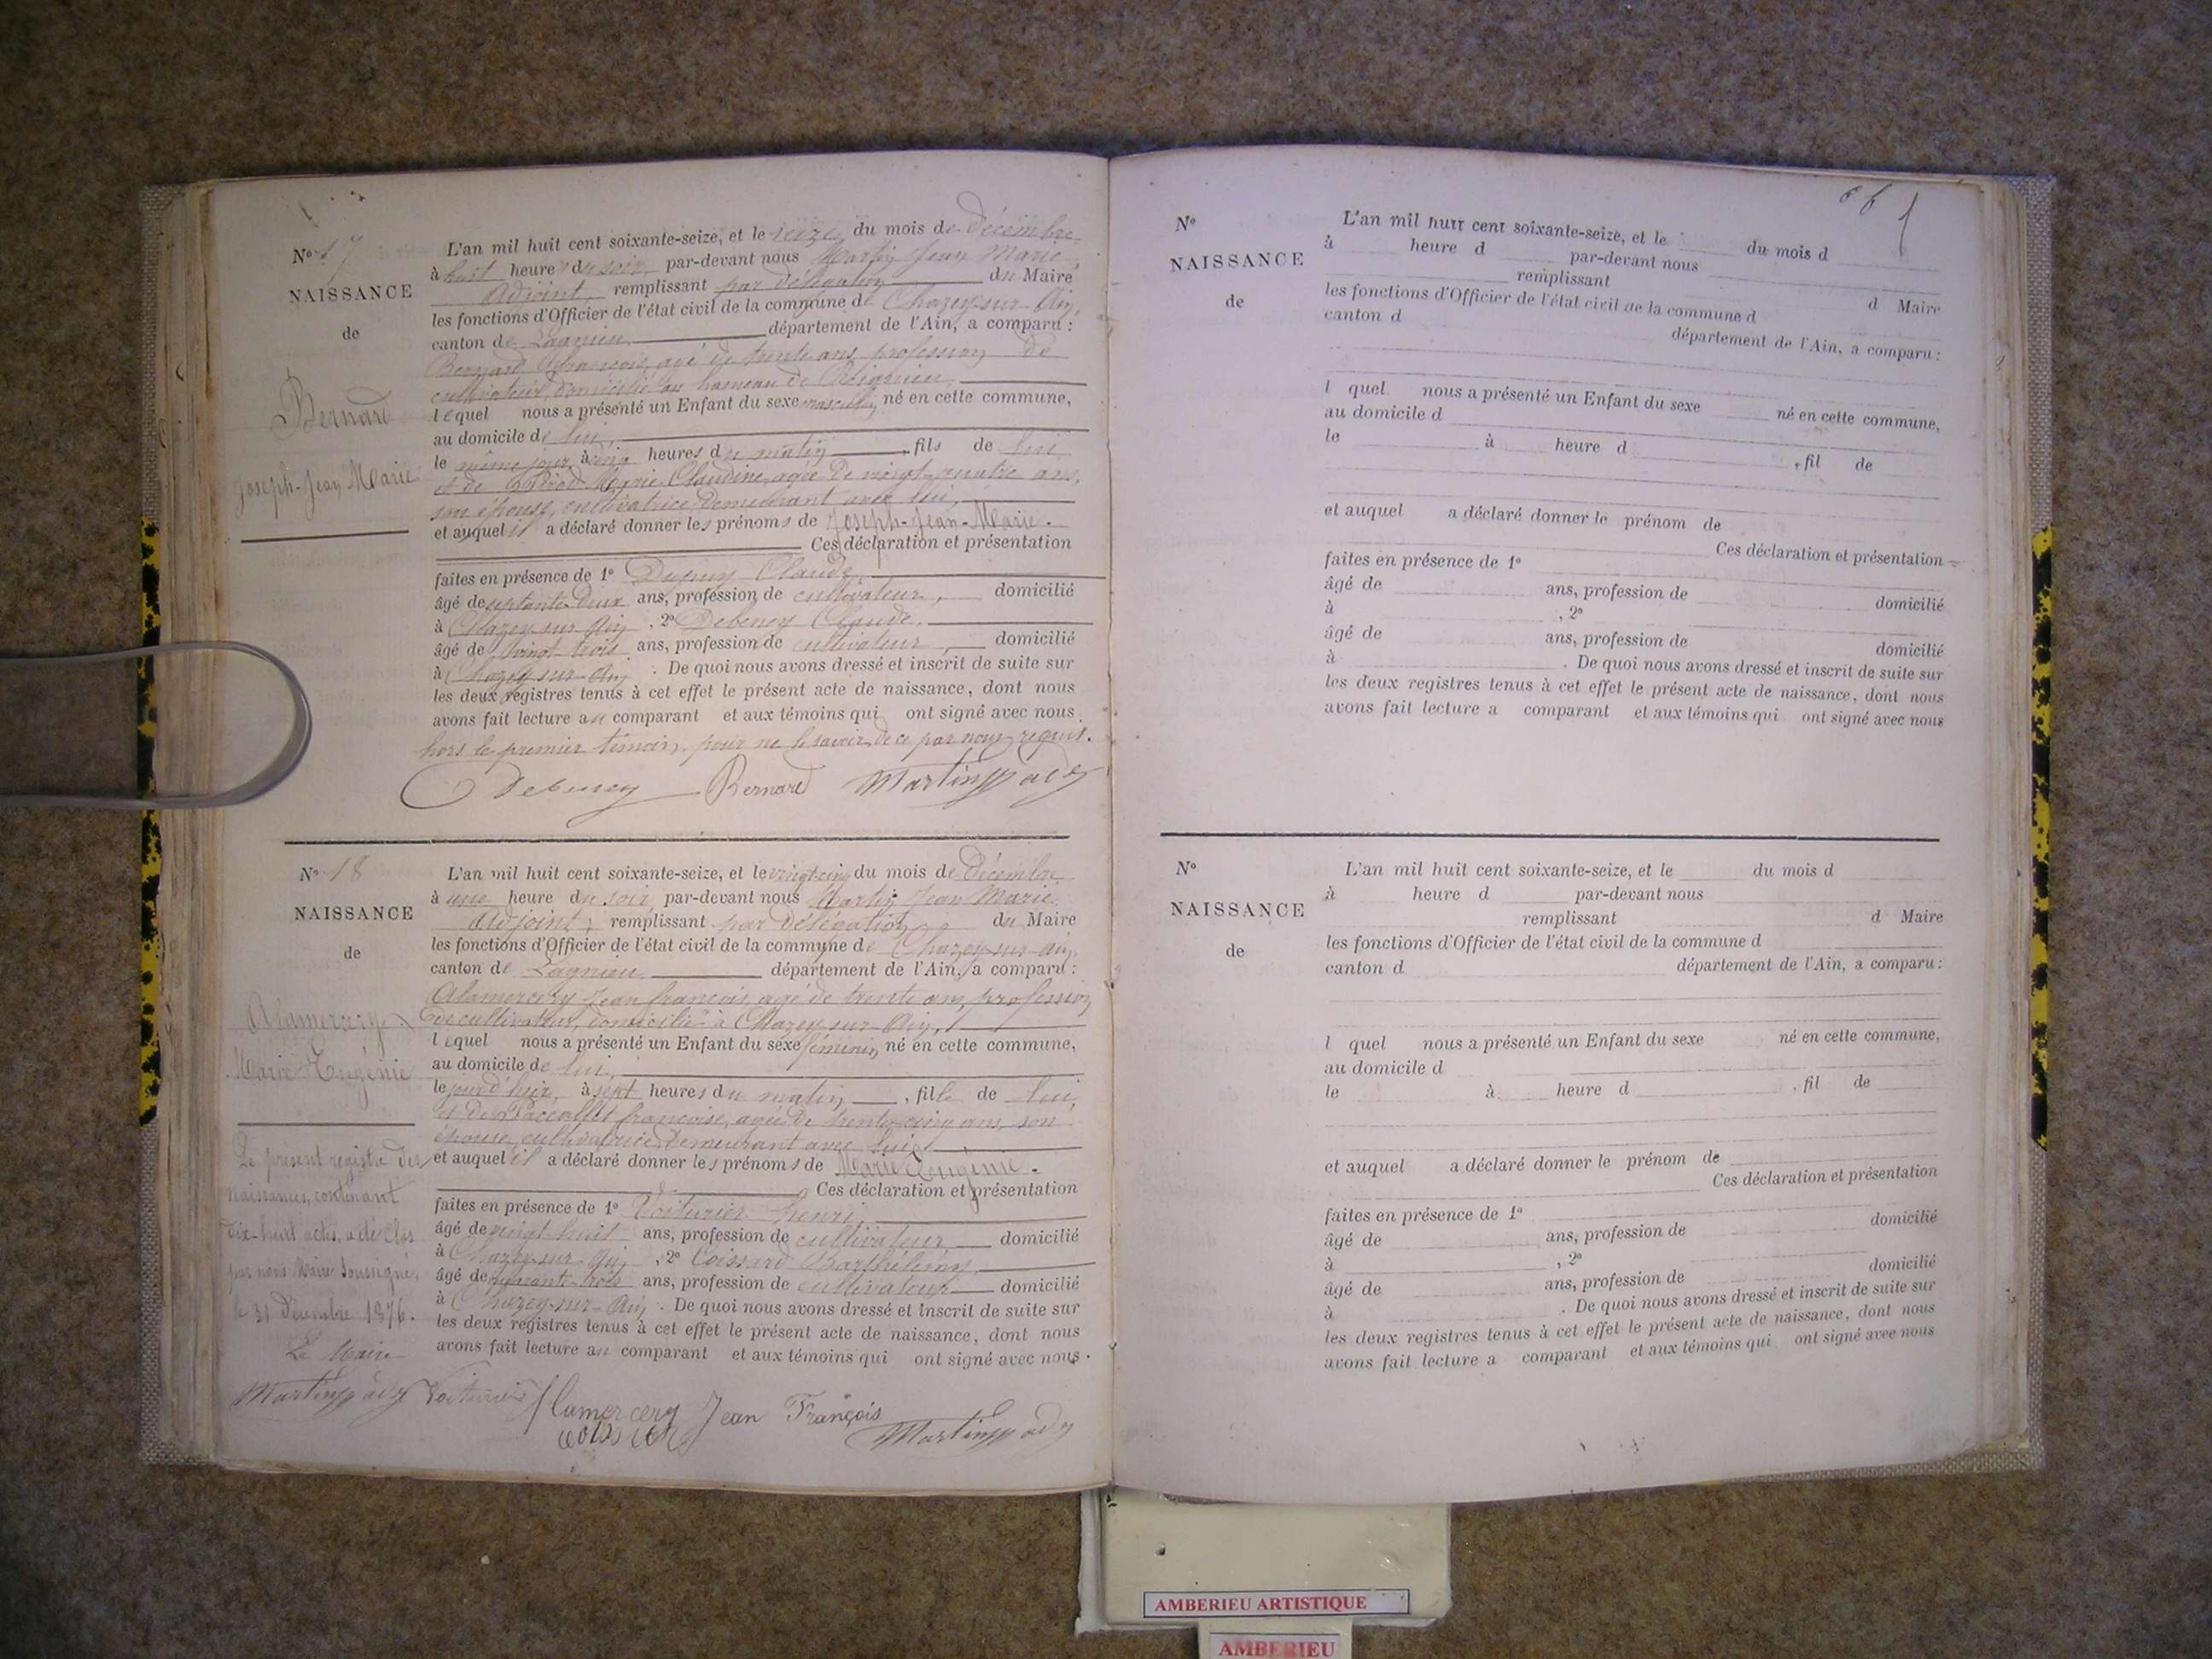 N° 17
NAISSANCE
de
Bernard
Joseph-Jean Marie
L'an mil huit cent soixante-seize, et le seize du mois de Décembre
à huit heures du soir par-devant nous Martin Jean Marie,
Adjoint, remplissant par délégation du Maire
les fonctions d'Officier de l'état civil de la commune de Chazey-sur-Ain,
canton de Lagnieu département de l'Ain, a comparu :
Bernard François, agé de trente ans, profession de
cultivateur, domicilié au hameau de
lequel nous a présenté un Enfant du sexe masculin né en cette commune,
au domicile de lui,
le même jour, à cinq heures du matin, fils de lui,
et de Marie Claudine, agée de vingt-quatre ans,
son épouse, cultivatrice demeurant avec lui,
et auquel il a déclaré donner les prénoms de Joseph-Jean-Marie.
Ces déclaration et présentation
faites en présence de 1° Claude,
âgé de septante-deux ans, profession de cultivateur, domicilié
à Chazey-sur-Ain, 2° Debeney Claude,
âgé de vingt trois ans, profession de cultivateur, domicilié
à Chazey-sur-Ain. De quoi nous avons dressé et inscrit de suite sur
les deux registres tenus à cet effet le présent acte de naissance, dont nous
avons fait lecture au comparant et aux témoins qui ont signé avec nous,
hors le premier témoin, pour ne le savoir, de ce par nous requis.
Debeney Bernard Martin adj
N° 18
NAISSANCE
de
Alamercery
Marie Eugénie
L'an mil huit cent soixante-seize, et le vingt-cinq du mois de Décembre
à une heure du soir par-devant nous Martin Jean Marie
adjoint, remplissant par délégation du Maire
les fonctions d'Officier de l'état civil de la commune de Chazey-sur-Ain,
canton de Lagnieu département de l'Ain, a comparu :
Alamercery Jean françois, agé de trente ans, profession
de cultivateur, domicilié à Chazey-sur-Ain,
lequel nous a présenté un Enfant du sexe féminin né en cette commune,
au domicile de lui,
le jour d'hier, à sept heures du matin, fille de lui,
et de françoise, agée de trente-cinq ans, son
épouse, cultivatrice demeurant avec lui,
et auquel il a déclaré donner les prénoms de Marie Eugénie.
Ces déclaration et présentation
faites en présence de 1° Voiturier henri,
âgé de vingt huit ans, profession de cultivateur domicilié
à Chazey-sur-Ain, 2° Coissard Barthélémy,
âgé de trois ans, profession de cultivateur domicilié
à Chazey-sur-Ain. De quoi nous avons dressé et inscrit de suite sur
les deux registres tenus à cet effet le présent acte de naissance, dont nous
avons fait lecture au comparant et aux témoins qui ont signé avec nous.
Le présent registre des
naissances, contenant
dix-huit actes, a été clos
par nous Maire soussigné,
le 31 Décembre 1876.
Le Maire
Martin adj Voiturier Alamercery Jean François
Martin adj
N°
NAISSANCE
de
L'an mil huit cent soixante-seize, et le du mois d
à heure d par-devant nous
remplissant d Maire
les fonctions d'Officier de l'état civil de la commune d
canton d département de l'Ain, a comparu :
l quel nous a présenté un Enfant du sexe né en cette commune,
au domicile d
le à heure d , fil de
et auquel a déclaré donner le prénom de
Ces déclaration et présentation
faites en présence de 1°
âgé de ans, profession de domicilié
à , 2°
âgé de ans, profession de domicilié
à . De quoi nous avons dressé et inscrit de suite sur
les deux registres tenus à cet effet le présent acte de naissance, dont nous
avons fait lecture a comparant et aux témoins qui ont signé avec nous
N°
NAISSANCE
de
L'an mil huit cent soixante-seize, et le du mois d
à heure d par-devant nous
remplissant d Maire
les fonctions d'Officier de l'état civil de la commune d
canton d département de l'Ain, a comparu :
l quel nous a présenté un Enfant du sexe né en cette commune,
au domicile d
le à heure d , fil de
et auquel a déclaré donner le prénom de
Ces déclaration et présentation
faites en présence de 1°
âgé de ans, profession de domicilié
à , 2°
âgé de ans, profession de domicilié
à . De quoi nous avons dressé et inscrit de suite sur
les deux registres tenus à cet effet le présent acte de naissance, dont nous
avons fait lecture a comparant et aux témoins qui ont signé avec nous
AMBERIEU ARTISTIQUE
AMBERIEU